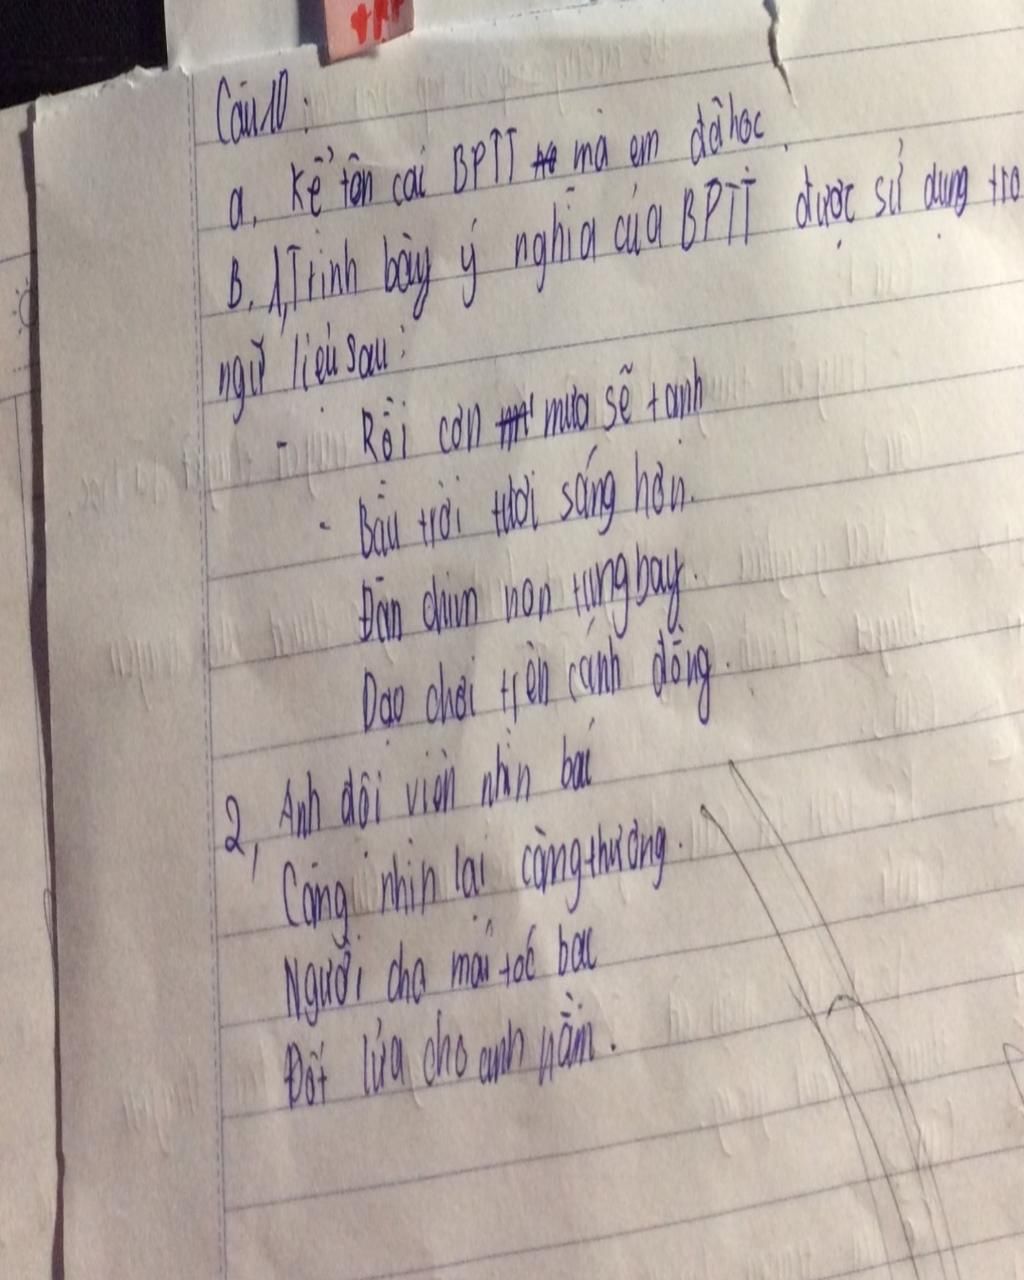 Câu 10:
a, Kể tên cái BPTT mà em đã học.
B. 1, Trình bày ý nghĩa của BPTT được sử dụng tro
ngữ liệu sau:
- Rồi cơn mưa sẽ tạnh
- Bầu trời tươi sáng hơn.
Đàn chim non tung bay.
Dạo chơi trên cánh đồng.
2, Anh đội viên nhìn bác
Càng nhìn lại càng thương.
Người cha mái tóc bạc
Đốt lửa cho anh nằm.